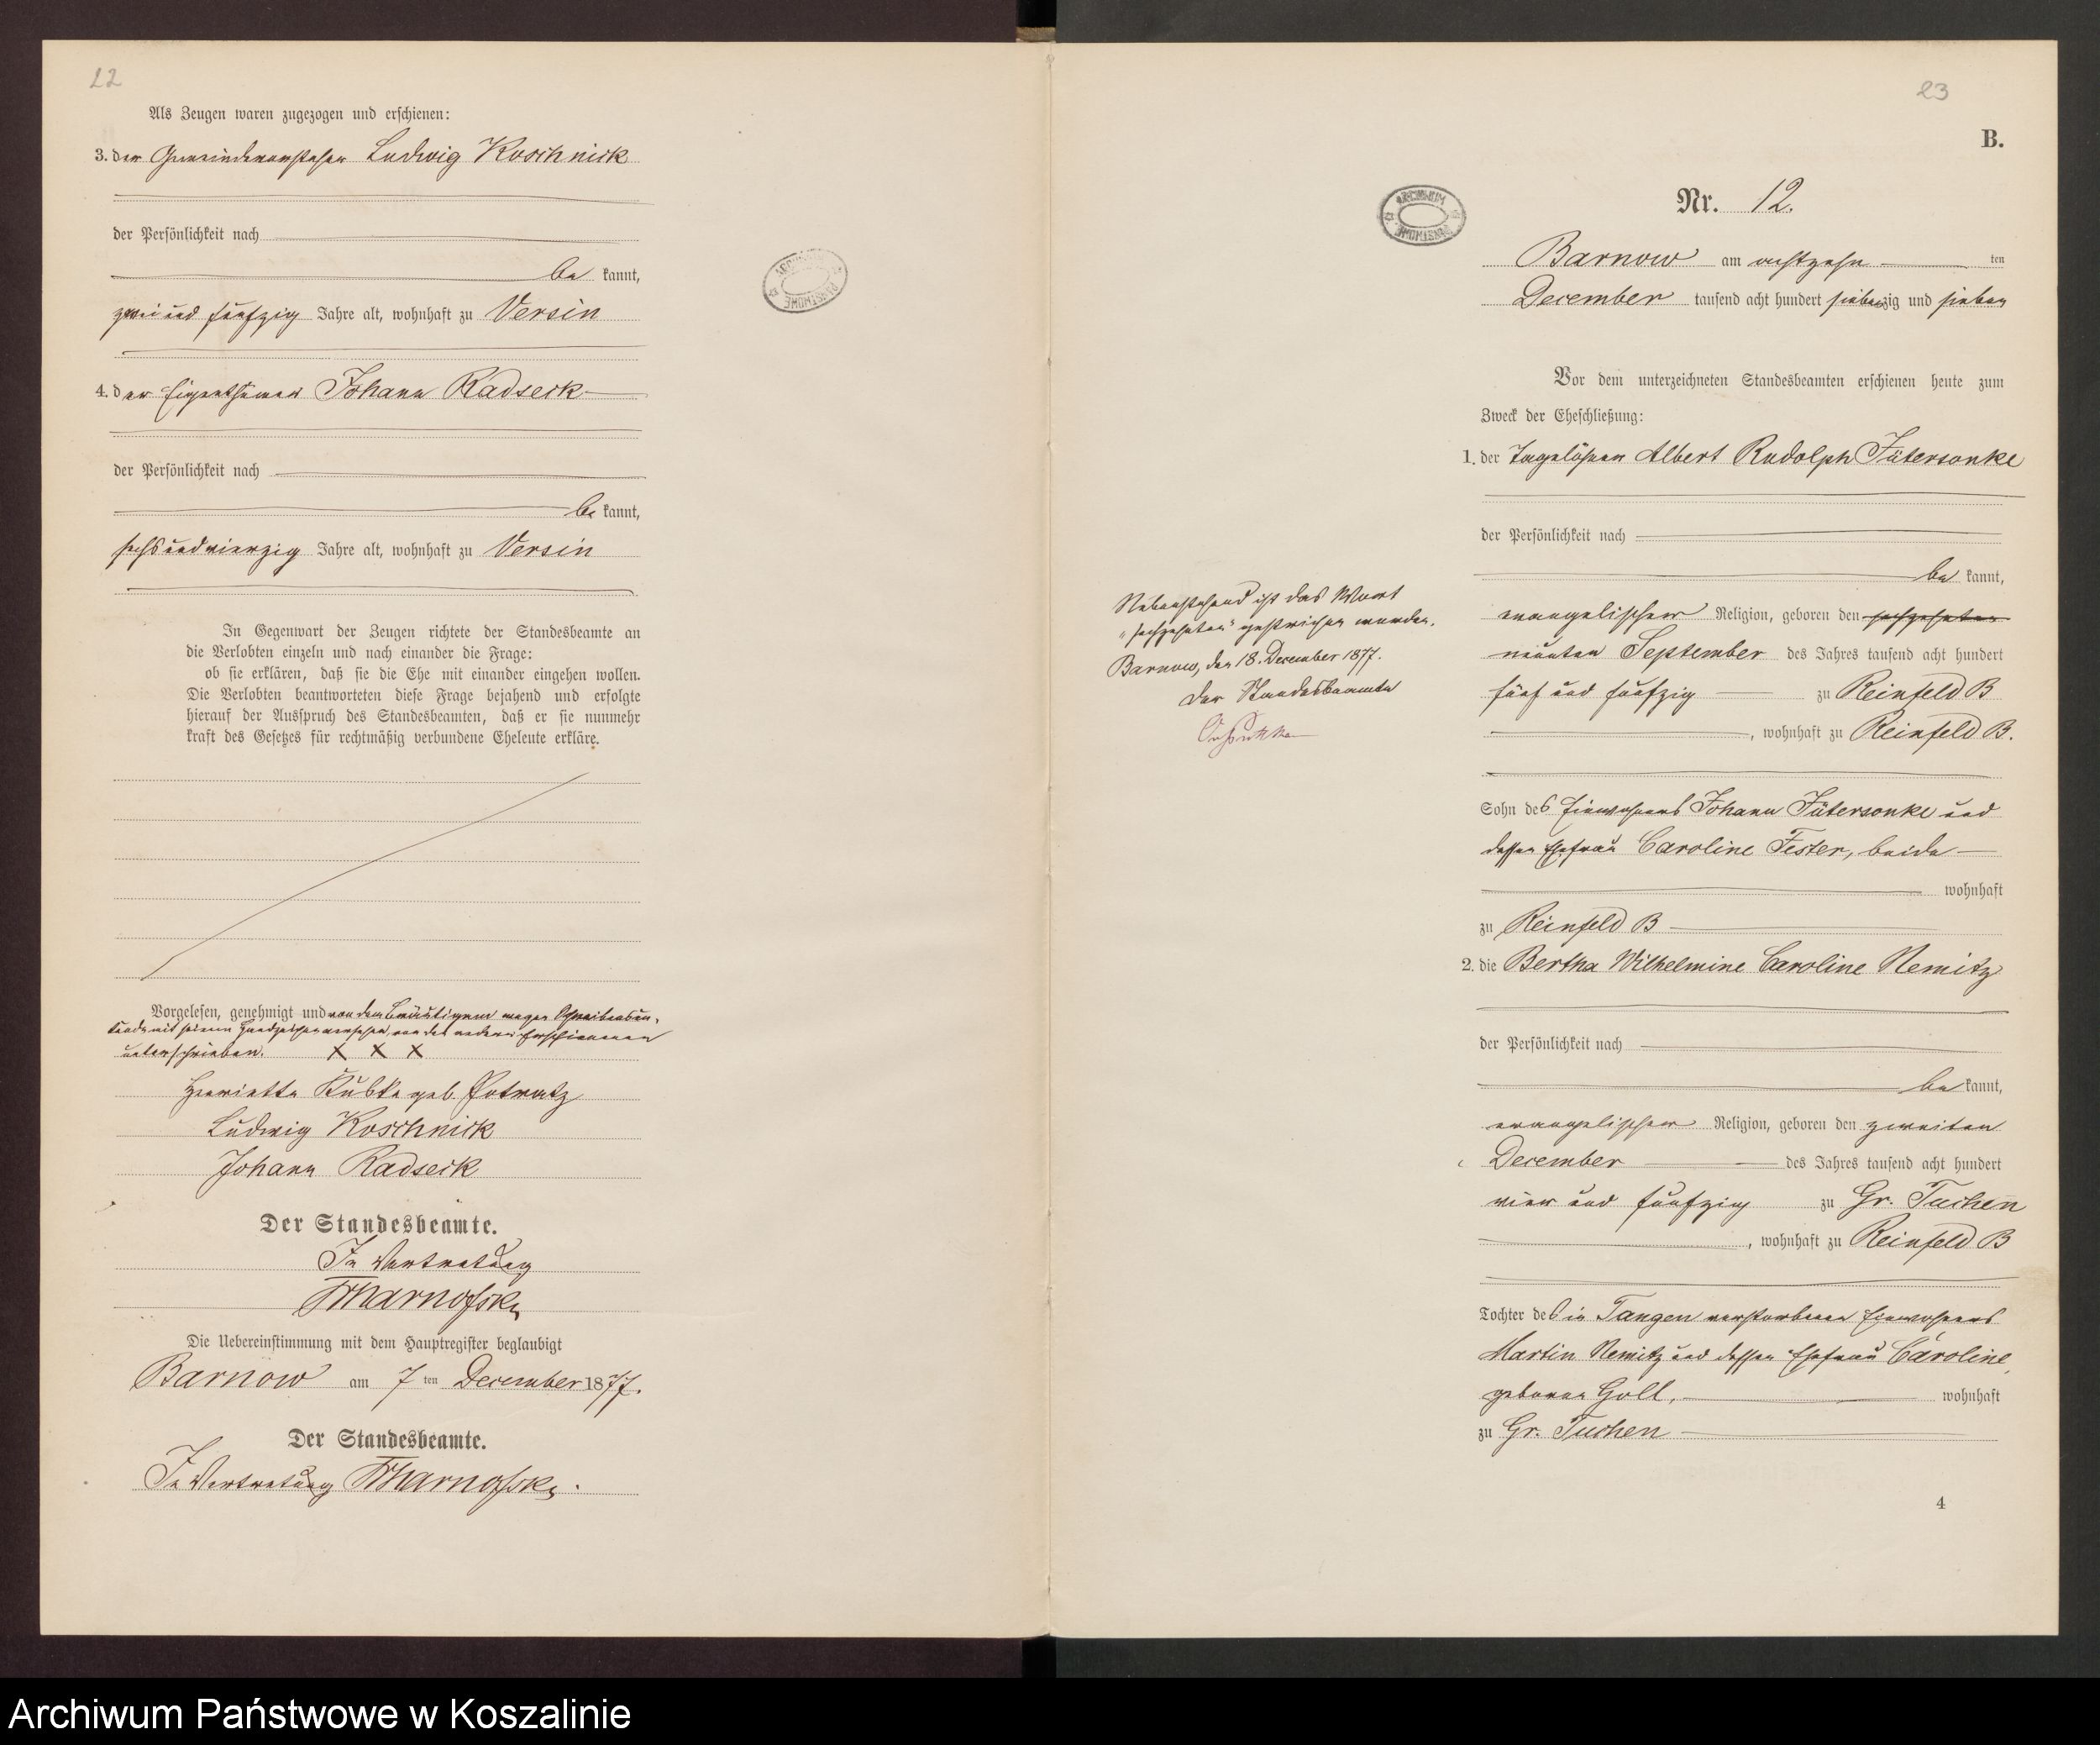 22
Als Zeugen waren zugezogen und erschienen:
3. der Gemeindevorsteher Ludwig Koschnick
der Persönlichkeit nach
be kannt,
zwei und fünfzig Jahre alt, wohnhaft zu Versin
4. der Eigenthümer Johann Radseck
der Persönlichkeit nach
be kannt,
sechs und vierzig Jahre alt, wohnhaft zu Versin
In Gegenwart der Zeugen richtete der Standesbeamte an
die Verlobten einzeln und nach einander die Frage:
ob sie erklären, daß sie die Ehe mit einander eingehen wollen.
Die Verlobten beantworteten diese Frage bejahend und erfolgte
hierauf der Ausspruch des Standesbeamten, daß er sie nunmehr
kraft des Gesetzes für rechtmäßig verbundene Eheleute erkläre.
Vorgelesen, genehmigt und von dem Bräutigam wegen Schreibensun-
kunde mit seinem Handzeichen versehen, von den andern Erschienenen
unterschrieben. X X X
Henriette Kubke geb. Potratz
Ludwig Koschnick
Johann Radseck
Der Standesbeamte.
In Vertretung
Die Uebereinstimmung mit dem Hauptregister beglaubigt
Barnow am 7 ten December 1877.
Der Standesbeamte.
In Vertretung
ARCHIWUM PAŃSTWOWE
23
B.
ARCHIWUM PAŃSTWOWE
Nr. 12.
Barnow am achtzehn ten
December tausend acht hundert siebenzig und sieben
Vor dem unterzeichneten Standesbeamten erschienen heute zum
Zweck der Eheschließung:
1. der Tagelöhner Albert Rudolph Jütersonke
der Persönlichkeit nach
be kannt,
evangelischer Religion, geboren den sechszehnten
neunten September des Jahres tausend acht hundert
fünf und fünfzig zu Reinfeld B
, wohnhaft zu Reinfeld B.
Sohn des Einwohners Johann Jütersonke und
dessen Ehefrau Caroline Fester, beide
wohnhaft
zu Reinfeld B
2. die Bertha Wilhelmine Caroline Nemitz
der Persönlichkeit nach
be kannt,
evangelischer Religion, geboren den zweiten
December des Jahres tausend acht hundert
vier und fünfzig zu Gr. Tuchen
, wohnhaft zu Reinfeld B
Tochter des in Tangen verstorbenen Einwohners
Martin Nemitz und dessen Ehefrau Caroline,
geborne Goll, wohnhaft
zu Gr. Tuchen
4
Nebenstehend ist das Wort
„sechszehnten" gestrichen worden.
Barnow, den 18. December 1877.
Der Standesbeamte
Archiwum Państwowe w Koszalinie